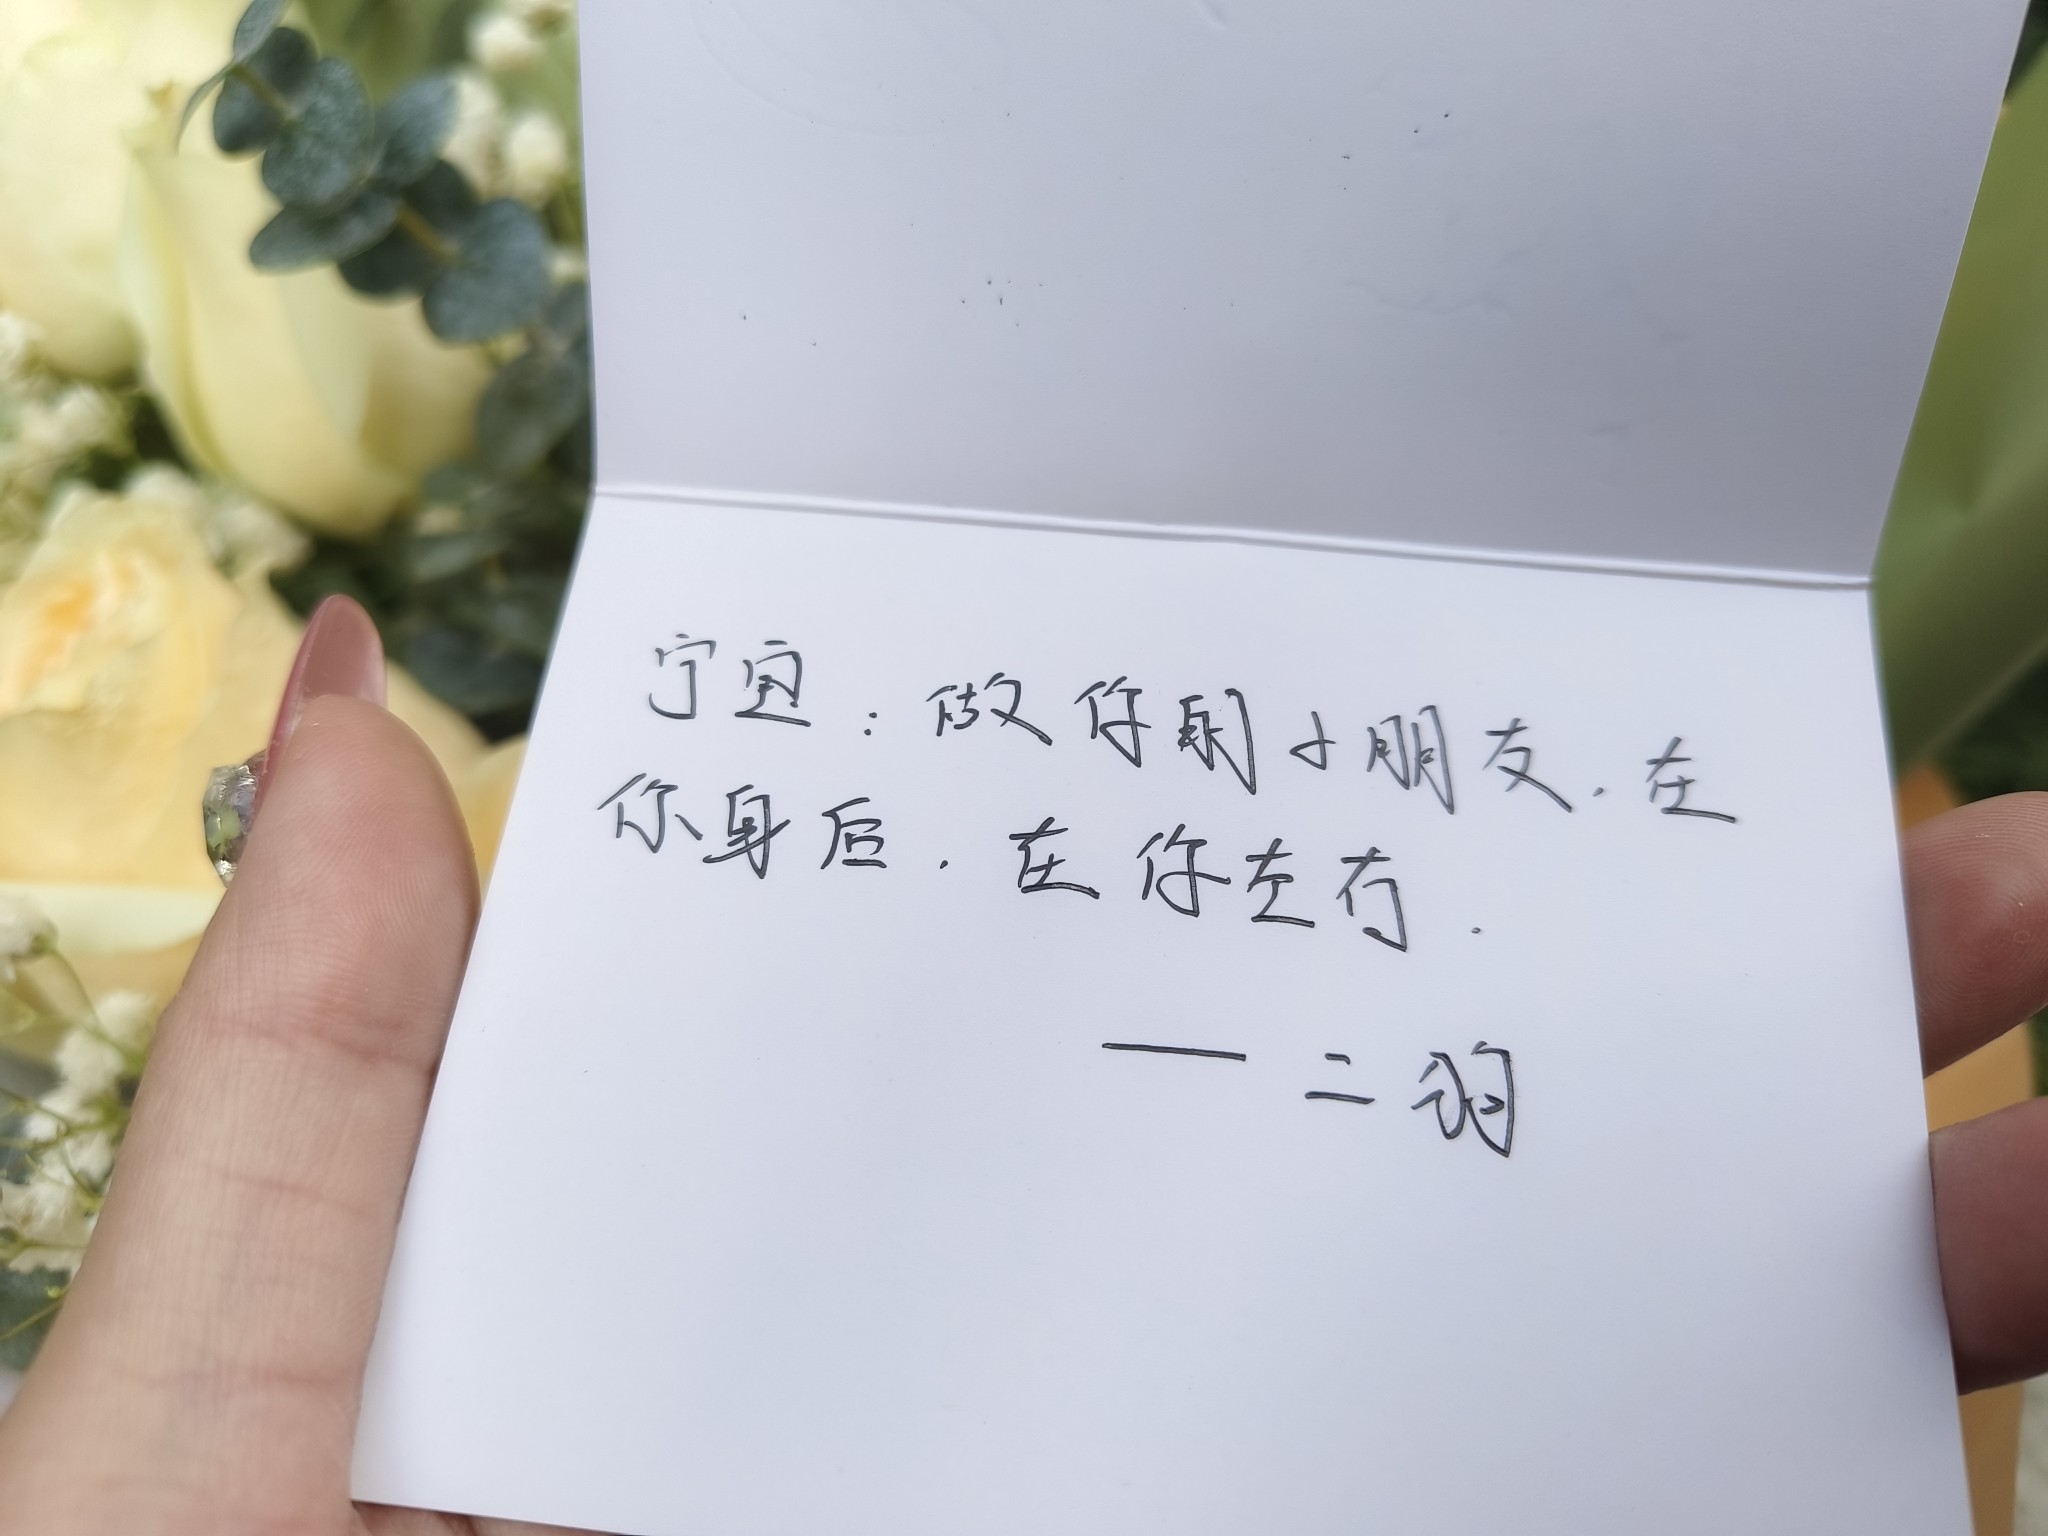 宁宜：做你的小朋友.在
你身后.在你左右.
——二羽